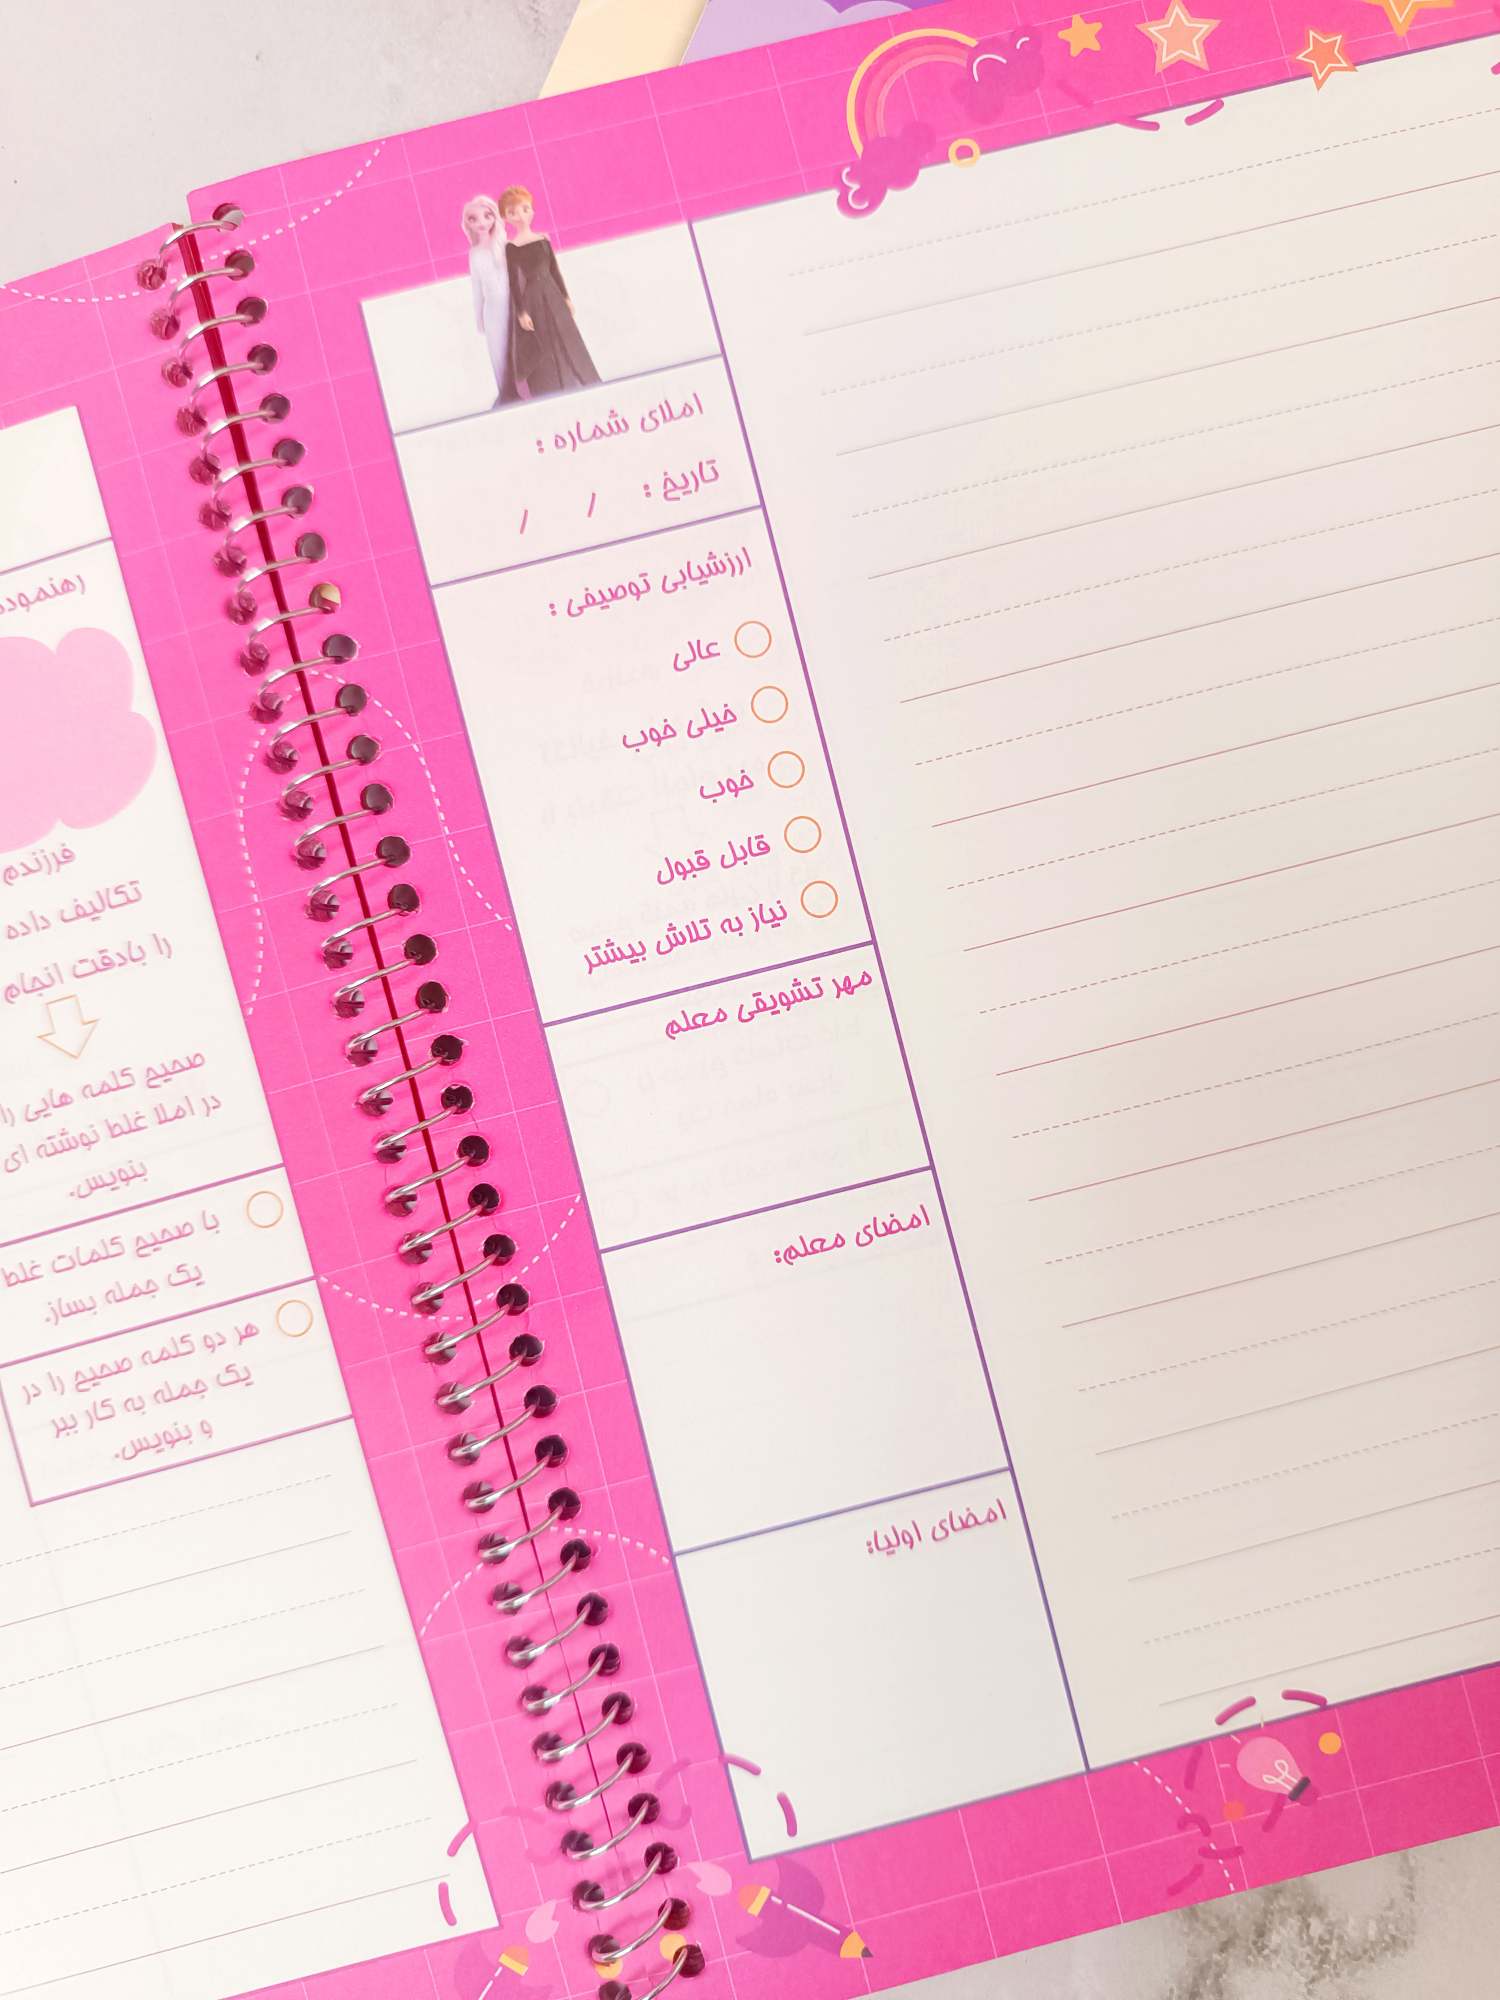 املای شماره :
تاریخ : / /
ارزشیابی توصیفی :
عالی
خیلی خوب
خوب
قابل قبول
نیاز به تلاش بیشتر
مهر تشویقی معلم
امضای معلم:
امضای اولیا:
فرزندم
تکالیف داده
را بادقت انجام
صحیح کلمه هایی را
در املا غلط نوشته ای
بنویس.
با صحیح کلمات غلط
یک جمله بساز.
هر دو کلمه صحیح را در
یک جمله به کار ببر
و بنویس.